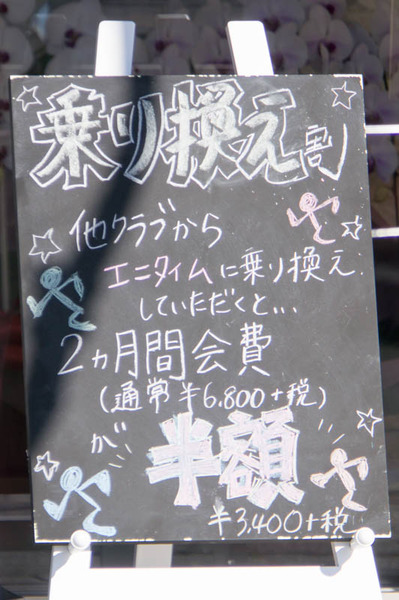 乗り換え割
他クラブから
エニタイムに乗り換え
していただくと...
2ヵ月間会費
(通常¥6.800+税)
が半額
¥3,400+税